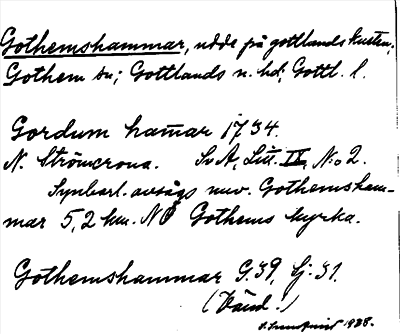 Gothemshammar, udde på gottlandskusten;
Gothem sn; Gottlands n. hd; Gottl. l.
Gordum ham̄ar 1734.
N. Strömcrona. SvA, Litt. II, No 2.
Synbarl. avsågs nuv. Gothemsham-
mar 5,2 km. NÖ Gothems kyrka.
Gothemshammar G:39, Sj:31.
(Vänd!)
1928.